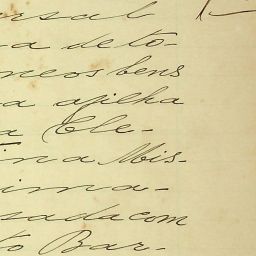 ersal
a de to-
ne os bens
a a filha
a Cle-
tina Mis-
ima-
sada com
to Bar-